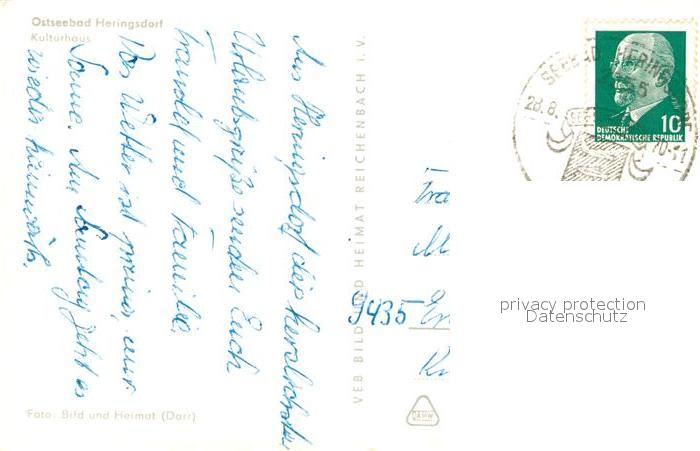 Ostseebad Heringsdorf
Kulturhaus
Aus Heringsdorf die herzlichsten
Urlaubsgrüße senden Euch
und Familie.
Das Wetter ist prima, nur
Sonne. Am Samstag geht es
wieder heimwärts.
Foto: Bild und Heimat (Darr)
VEB BILD UND HEIMAT REICHENBACH I. V.
9435
DEWAG
SEEBAD HERINGSDORF
28.8.
10
DEUTSCHE
DEMOKRATISCHE REPUBLIK
privacy protection
Datenschutz